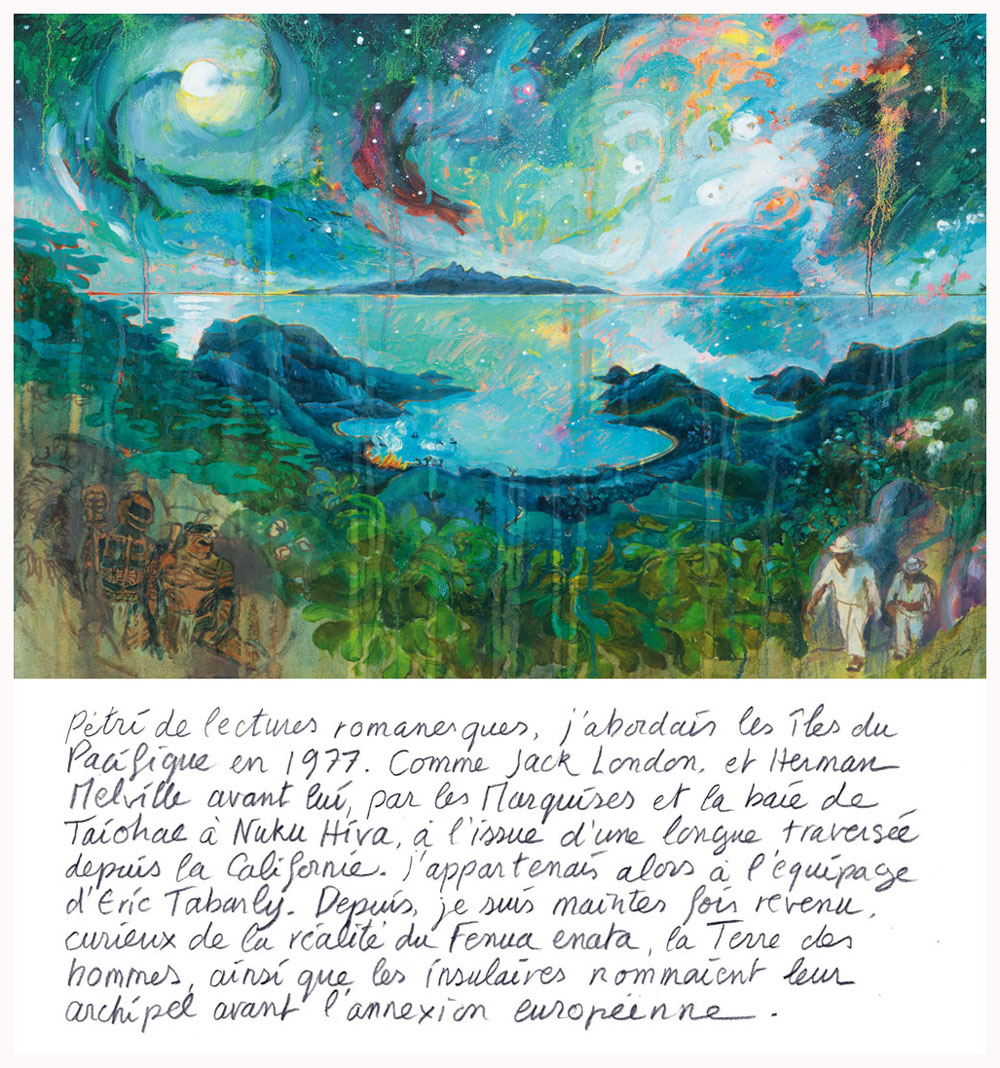 Pétri de lectures romanesques, j'abordais les îles du
Pacifique en 1977. Comme Jack London, et Herman
Melville avant lui, par les Marquises et la baie de
Taiohae à Nuku Hiva, à l'issue d'une longue traversée
depuis la Californie. J'appartenais alors à l'équipage
d'Eric Tabarly. Depuis, je suis maintes fois revenu,
curieux de la réalité du Fenua enata, la Terre des
hommes, ainsi que les insulaires nommaient leur
archipel avant l'annexion européenne.